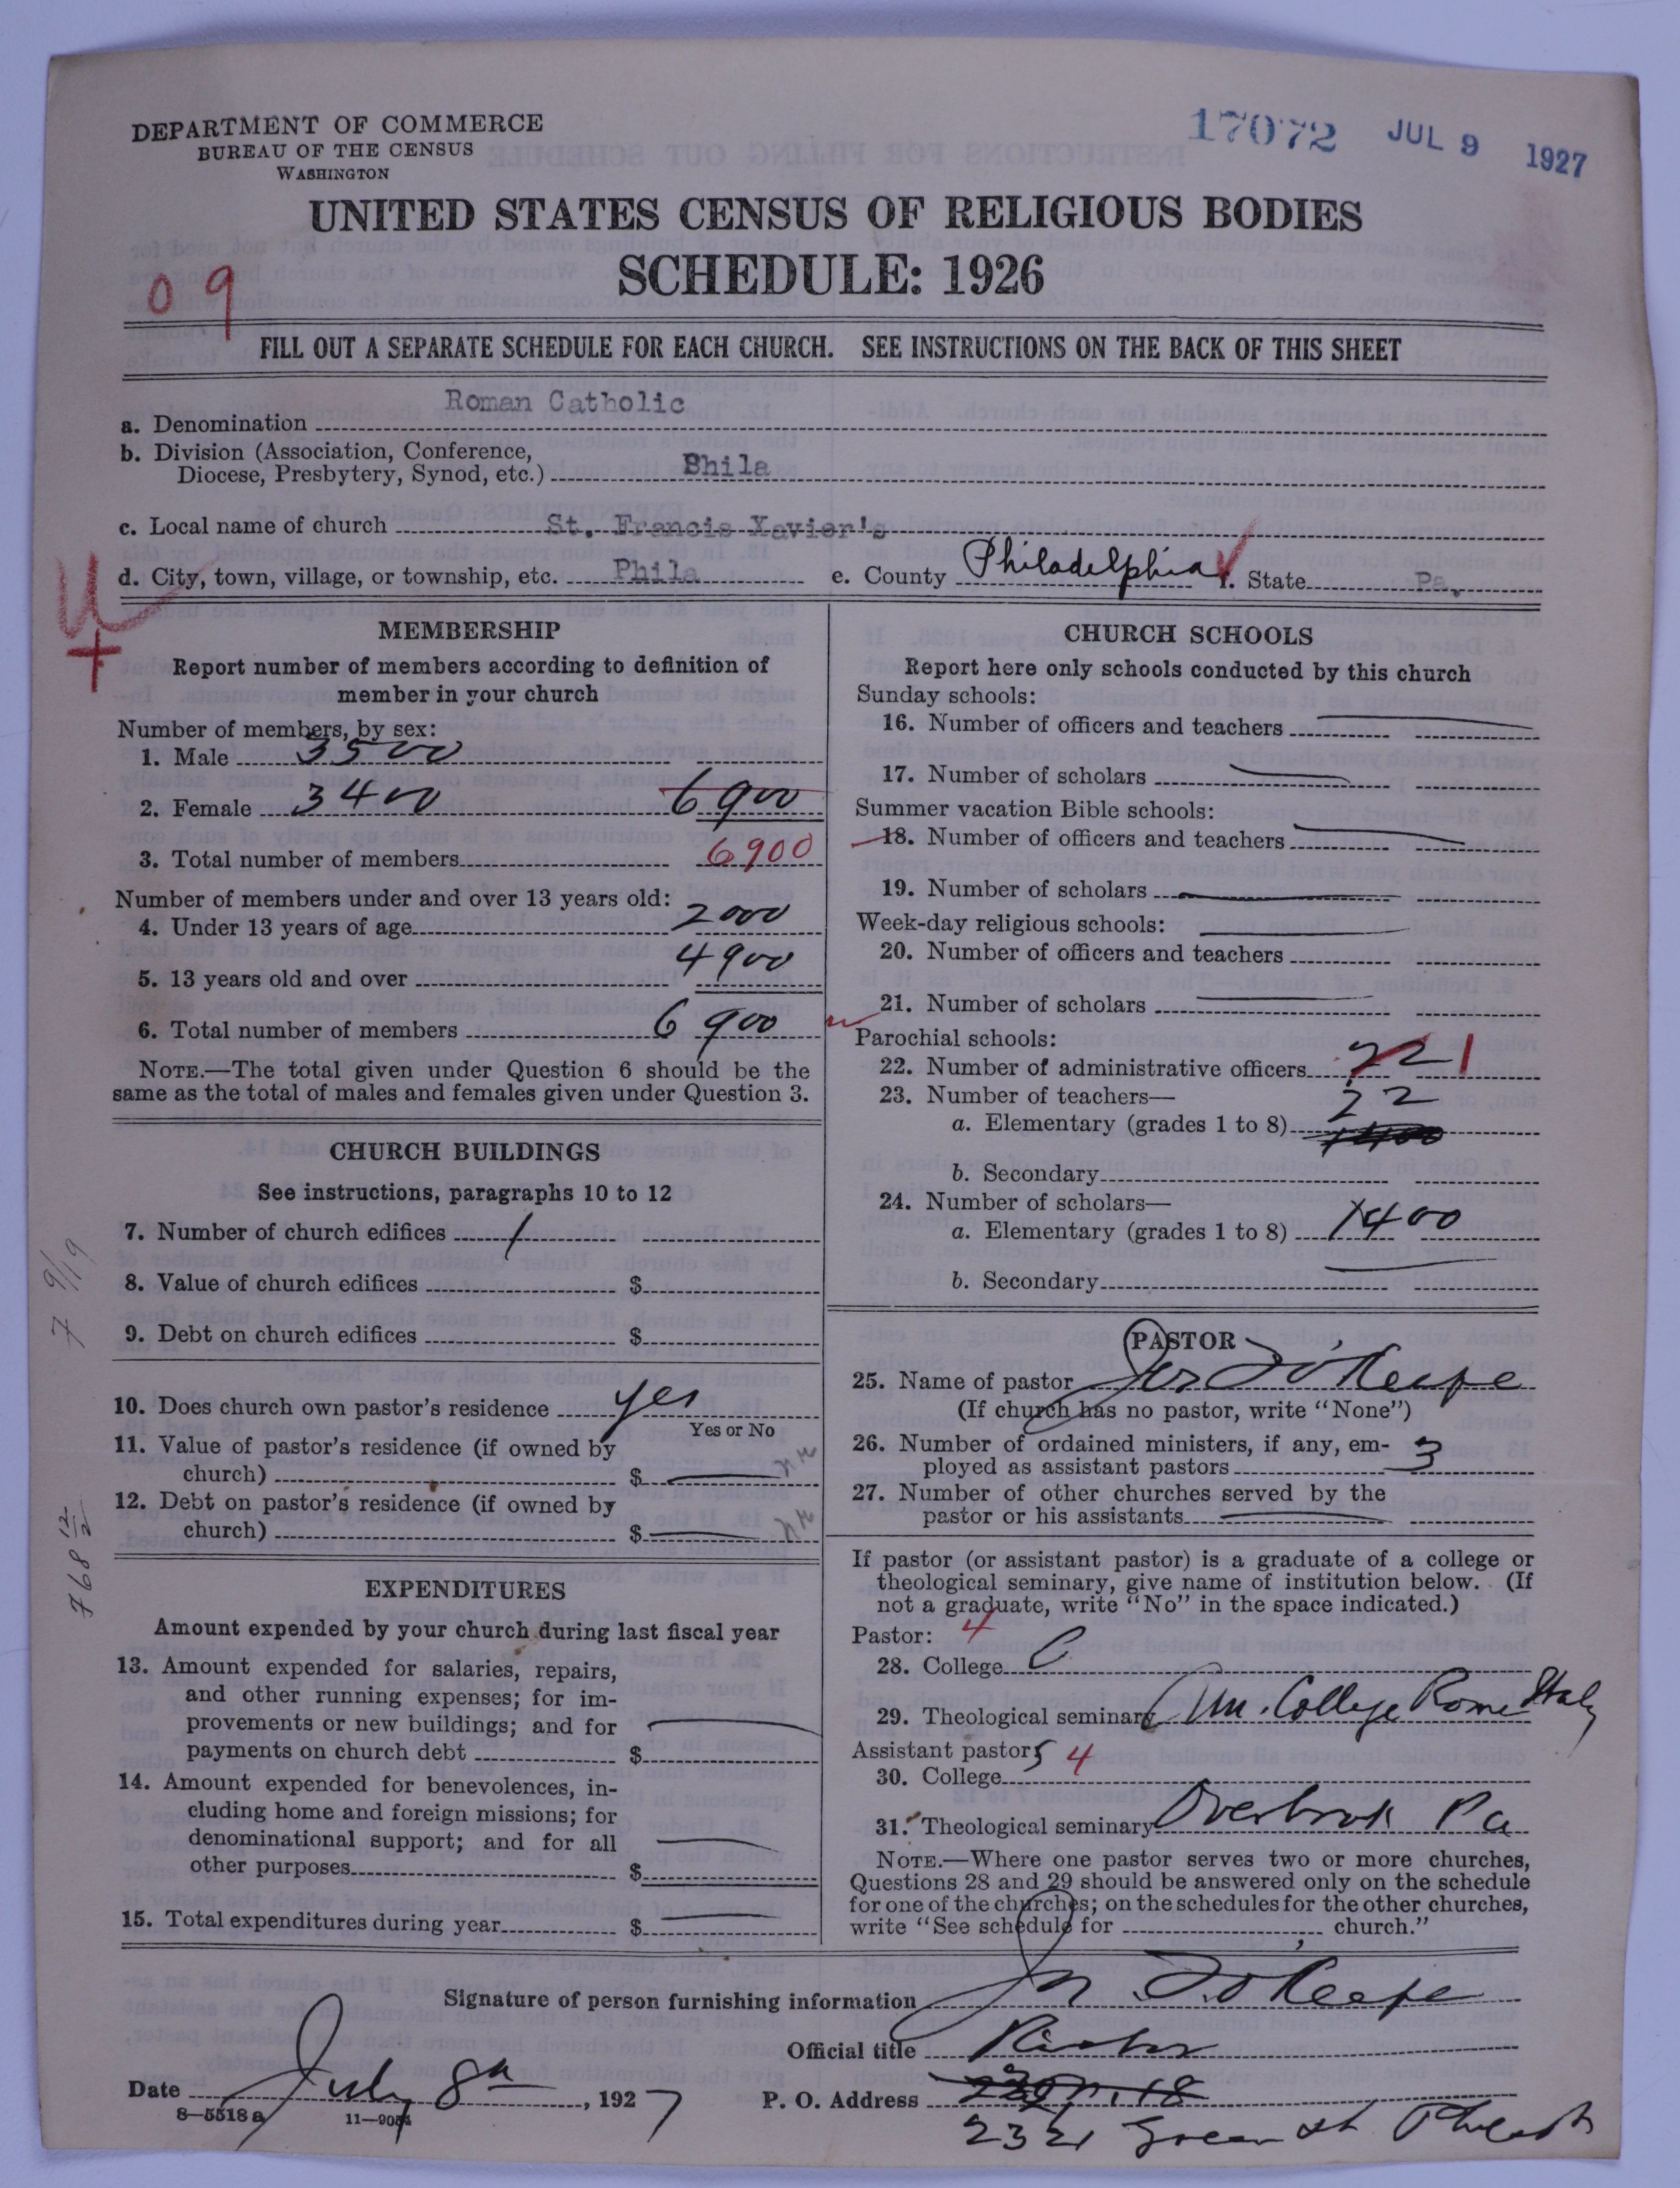 17072 JUL 9 1927
DEPARTMENT OF COMMERCE
BUREAU OF THE CENSUS
WASHINGTON
UNITED STATES CENSUS OF RELIGIOUS BODIES
SCHEDULE: 1926
09
FILL OUT A SEPARATE SCHEDULE FOR EACH CHURCH. SEE INSTRUCTIONS ON THE BACK OF THIS SHEET
a. Denomination Roman Catholic
b. Division (Association, Conference,
Diocese, Presbytery, Synod, etc.) Phila
c. Local name of church St. Francis Xavier's
d. City, town, village, or township, etc. Phila e. County Philadelphia f. State Pa.
MEMBERSHIP
Report number of members according to definition of
member in your church
Number of members, by sex:
1. Male 3500
2. Female 3400 6900
3. Total number of members 6900
Number of members under and over 13 years old:
4. Under 13 years of age 2000
5. 13 years old and over 4900
6. Total number of members 6900
NOTE.—The total given under Question 6 should be the
same as the total of males and females given under Question 3.
CHURCH BUILDINGS
See instructions, paragraphs 10 to 12
7. Number of church edifices 1
8. Value of church edifices $
9. Debt on church edifices $
10. Does church own pastor's residence yes
Yes or No
11. Value of pastor's residence (if owned by
church) $
12. Debt on pastor's residence (if owned by
church) $
EXPENDITURES
Amount expended by your church during last fiscal year
13. Amount expended for salaries, repairs,
and other running expenses; for im-
provements or new buildings; and for
payments on church debt $
14. Amount expended for benevolences, in-
cluding home and foreign missions; for
denominational support; and for all
other purposes $
15. Total expenditures during year $
CHURCH SCHOOLS
Report here only schools conducted by this church
Sunday schools:
16. Number of officers and teachers
17. Number of scholars
Summer vacation Bible schools:
18. Number of officers and teachers
19. Number of scholars
Week-day religious schools:
20. Number of officers and teachers
21. Number of scholars
Parochial schools:
22. Number of administrative officers 22 1
23. Number of teachers—
a. Elementary (grades 1 to 8) 22
b. Secondary
24. Number of scholars—
a. Elementary (grades 1 to 8) 1400
b. Secondary
PASTOR
25. Name of pastor O'Keefe
(If church has no pastor, write "None")
26. Number of ordained ministers, if any, em-
ployed as assistant pastors 3
27. Number of other churches served by the
pastor or his assistants
If pastor (or assistant pastor) is a graduate of a college or
theological seminary, give name of institution below. (If
not a graduate, write "No" in the space indicated.)
Pastor: 4
28. College
29. Theological seminary Am. College Rome Italy
Assistant pastors 4
30. College
31. Theological seminary Overbrook Pa
NOTE.—Where one pastor serves two or more churches,
Questions 28 and 29 should be answered only on the schedule
for one of the churches; on the schedules for the other churches,
write "See schedule for church."
Signature of person furnishing information O'Keefe
Official title Pastor
Date July 8th, 1927 P. O. Address
2321 Green St
8-5518 a 11-9054